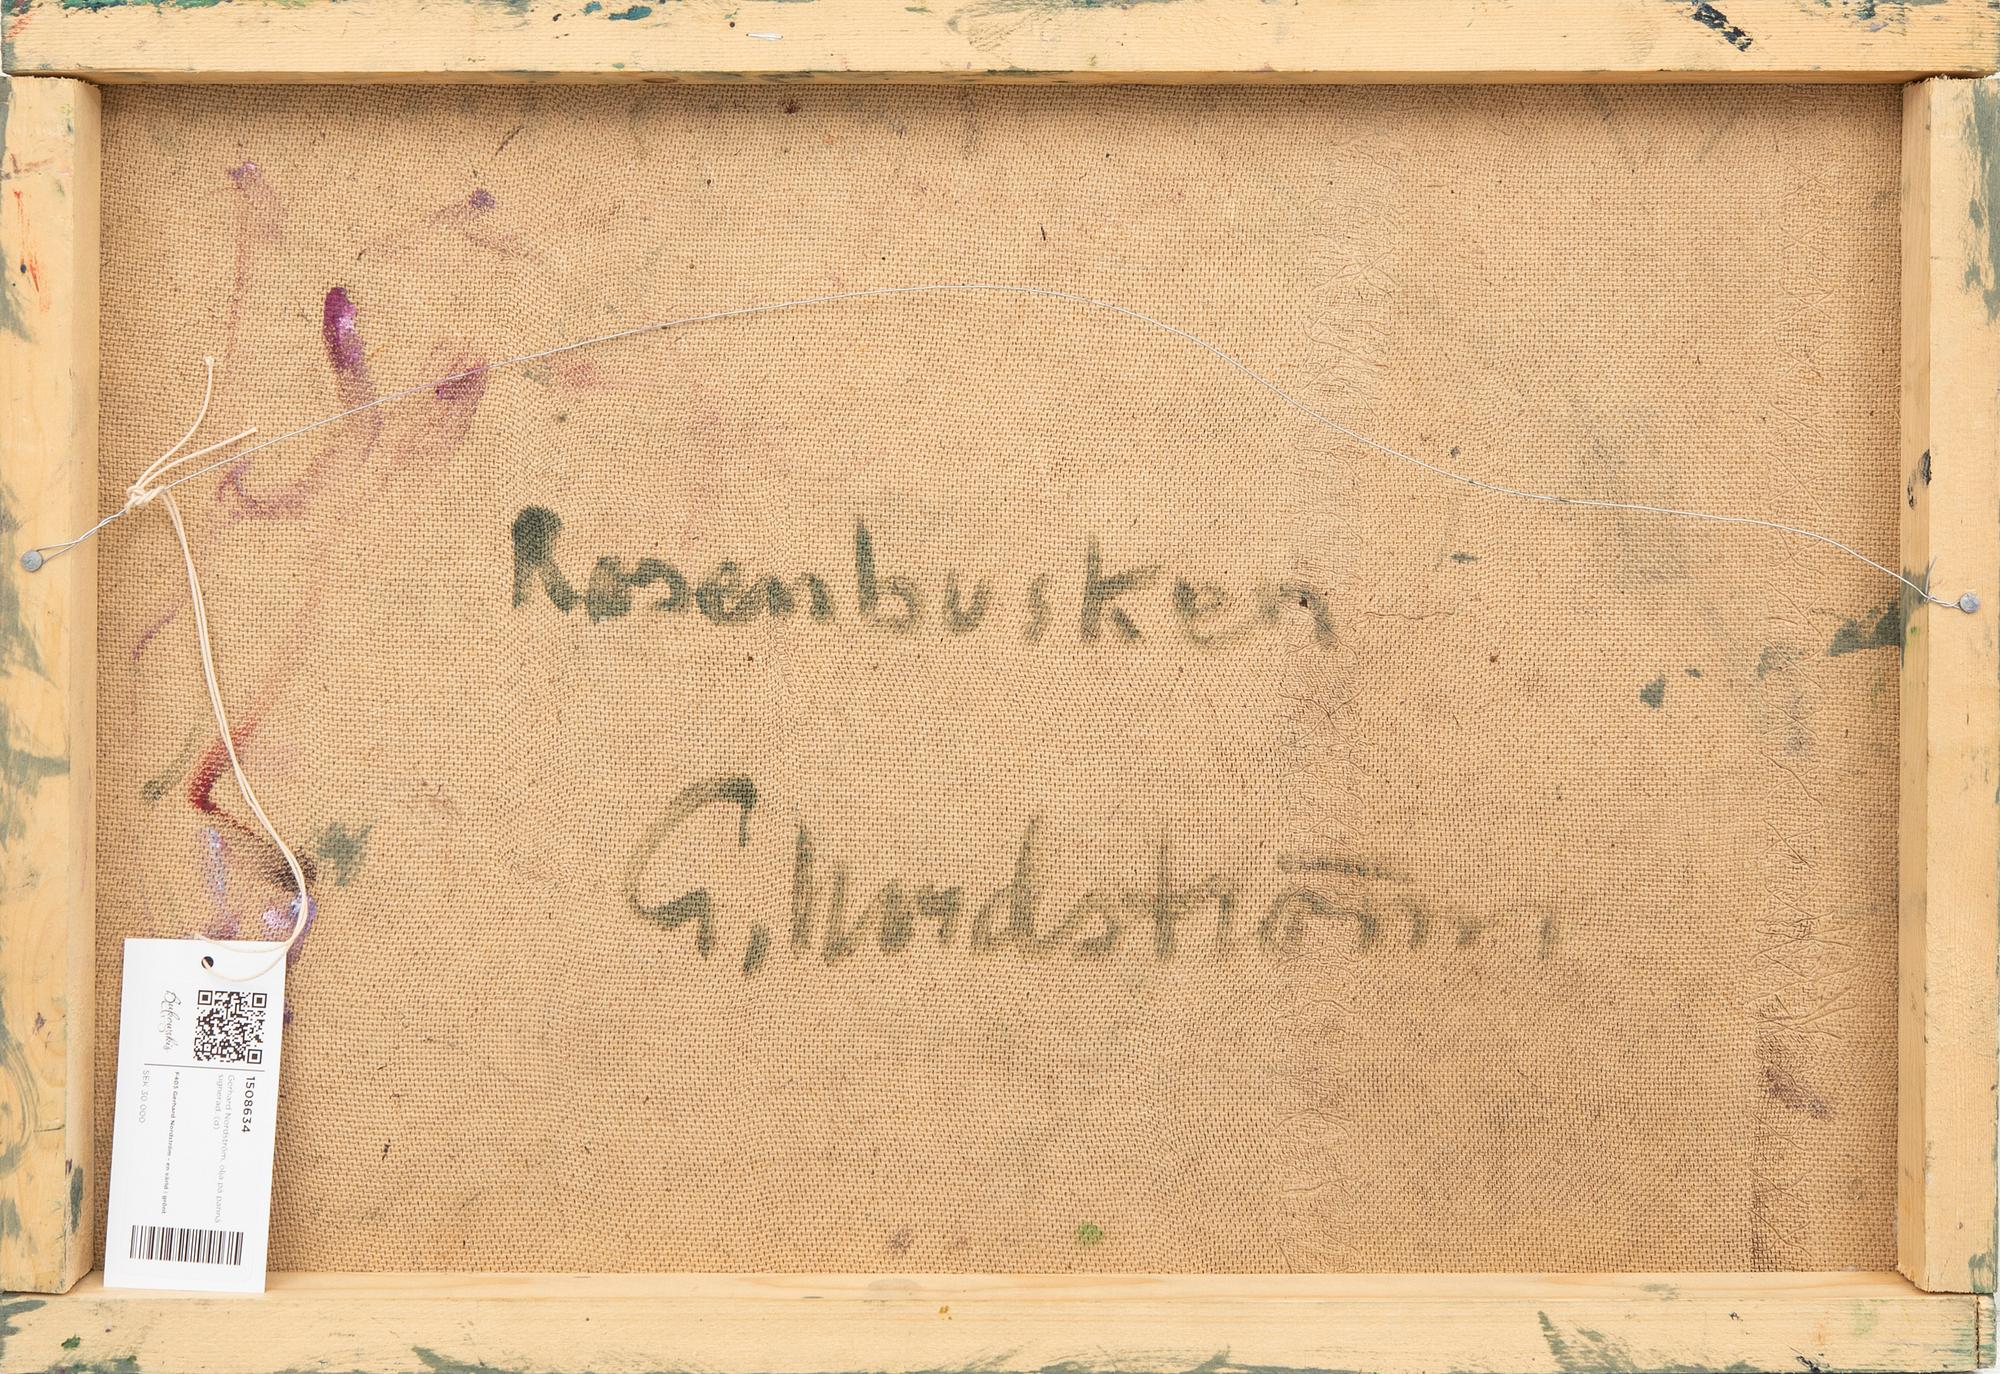 Rosenbusken
G, Nordström
Bukowskis
15086334
Gerhard Nordström, olja på pannå
signerad. (d)
F403 Gerhard Nordström – en värld i grönt
SEK 30 000